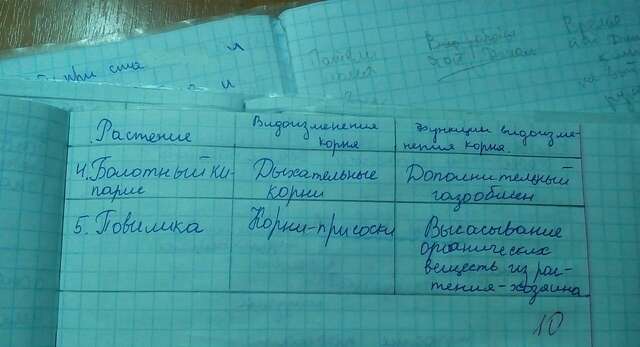 при
Растение
Видоизменения
корня
Функции видоизме-
нения корня.
4. Болотный ки-
парис
Дыхательные
корни
Дополнительный
газообмен
5. Повилика
Корни-присоски
Высасывание
органических
веществ из рас-
тения-хозяина
10